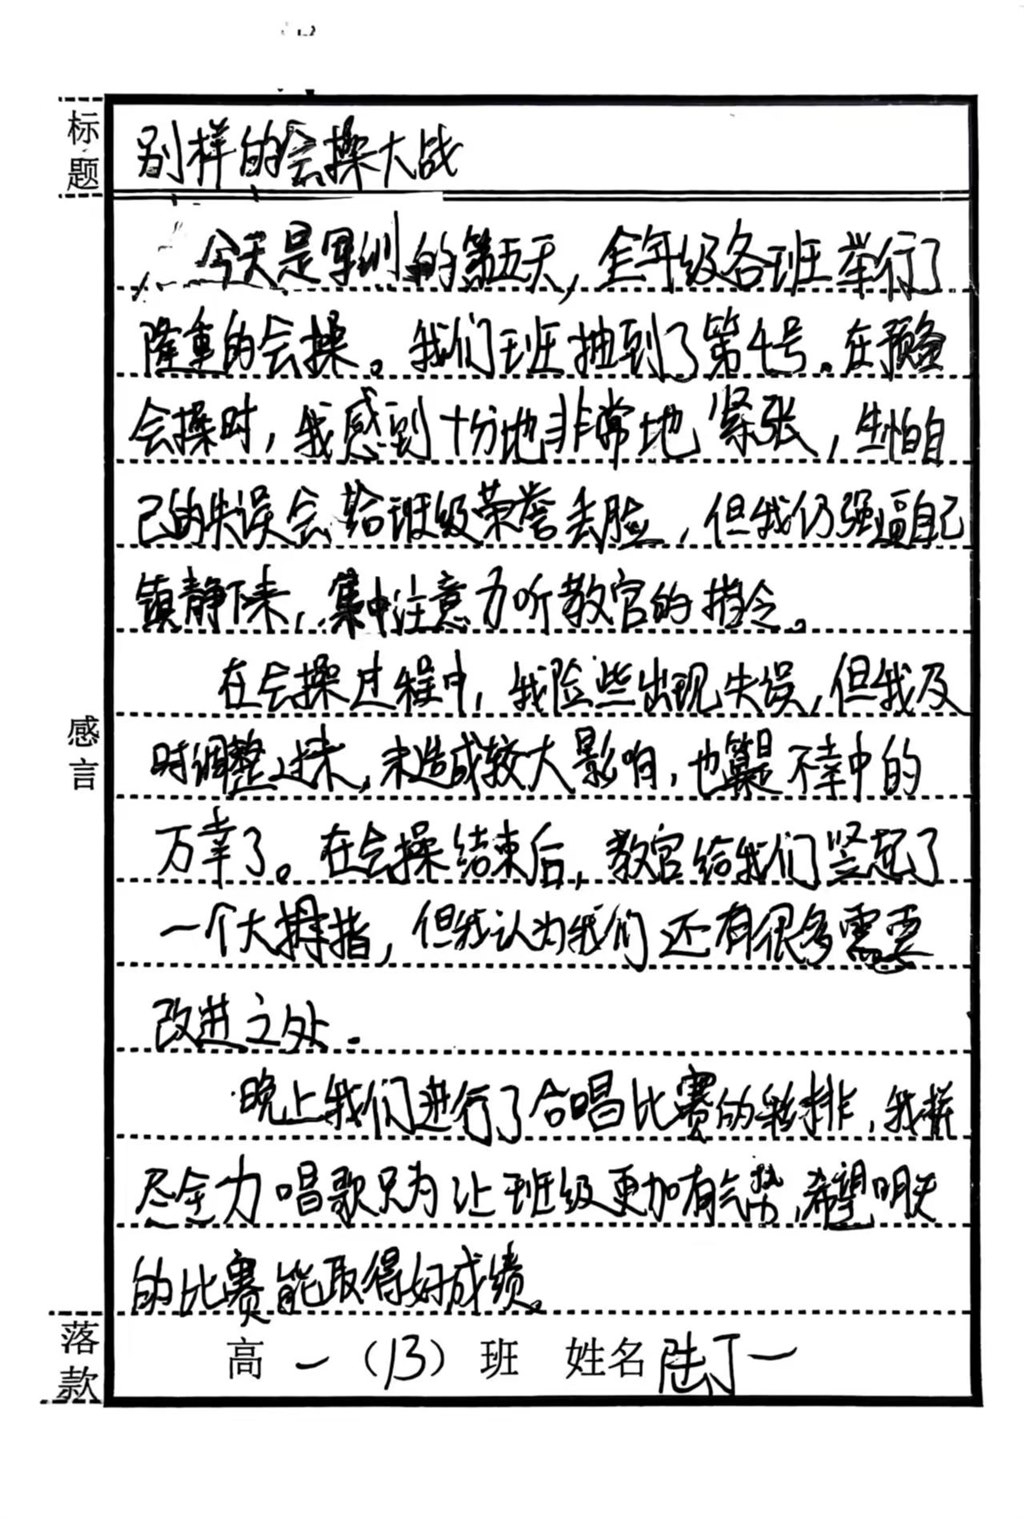 标题
别样的会操大战
今天是军训的第五天，全年级各班举行了
隆重的会操。我们班抽到了第4号。在预备
会操时，我感到十分地非常地紧张，生怕自
己的失误会给班级荣誉丢脸，但我仍强逼自己
镇静下来，集中注意力听教官的指令。
在会操过程中，我险些出现失误，但我及
时调整过来，未造成较大影响，也算是不幸中的
万幸了。在会操结束后，教官给我们竖起了
一个大拇指，但我认为我们还有很多需要
改进之处.
感言
晚上我们进行了合唱比赛的彩排，我拼
尽全力唱歌只为让班级更加有气势，希望明天
的比赛能取得好成绩。
落款
高一（13）班 姓名陆丁一